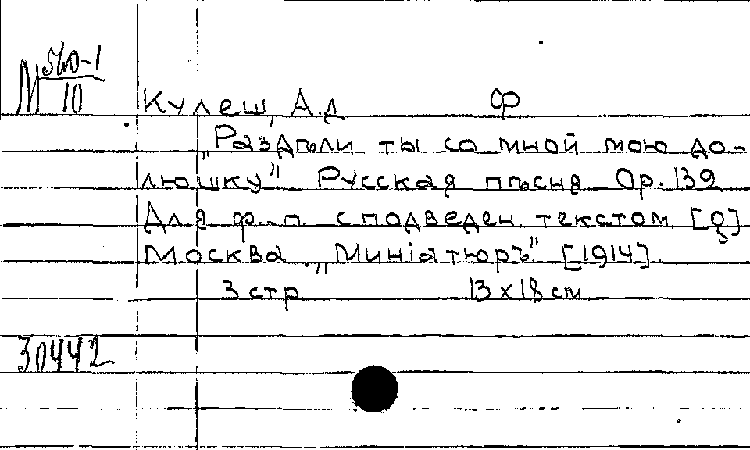 М 560-1
10
Кулеш, А.д Ф
„Раздѣли ты со мной мою до-
люшку" Русская пѣсня Op. 139
Для ф.-п. с подведен. текстом [8]
Москва. „Миніатюръ" [1914].
3 стр. 13 x 18 см
30442